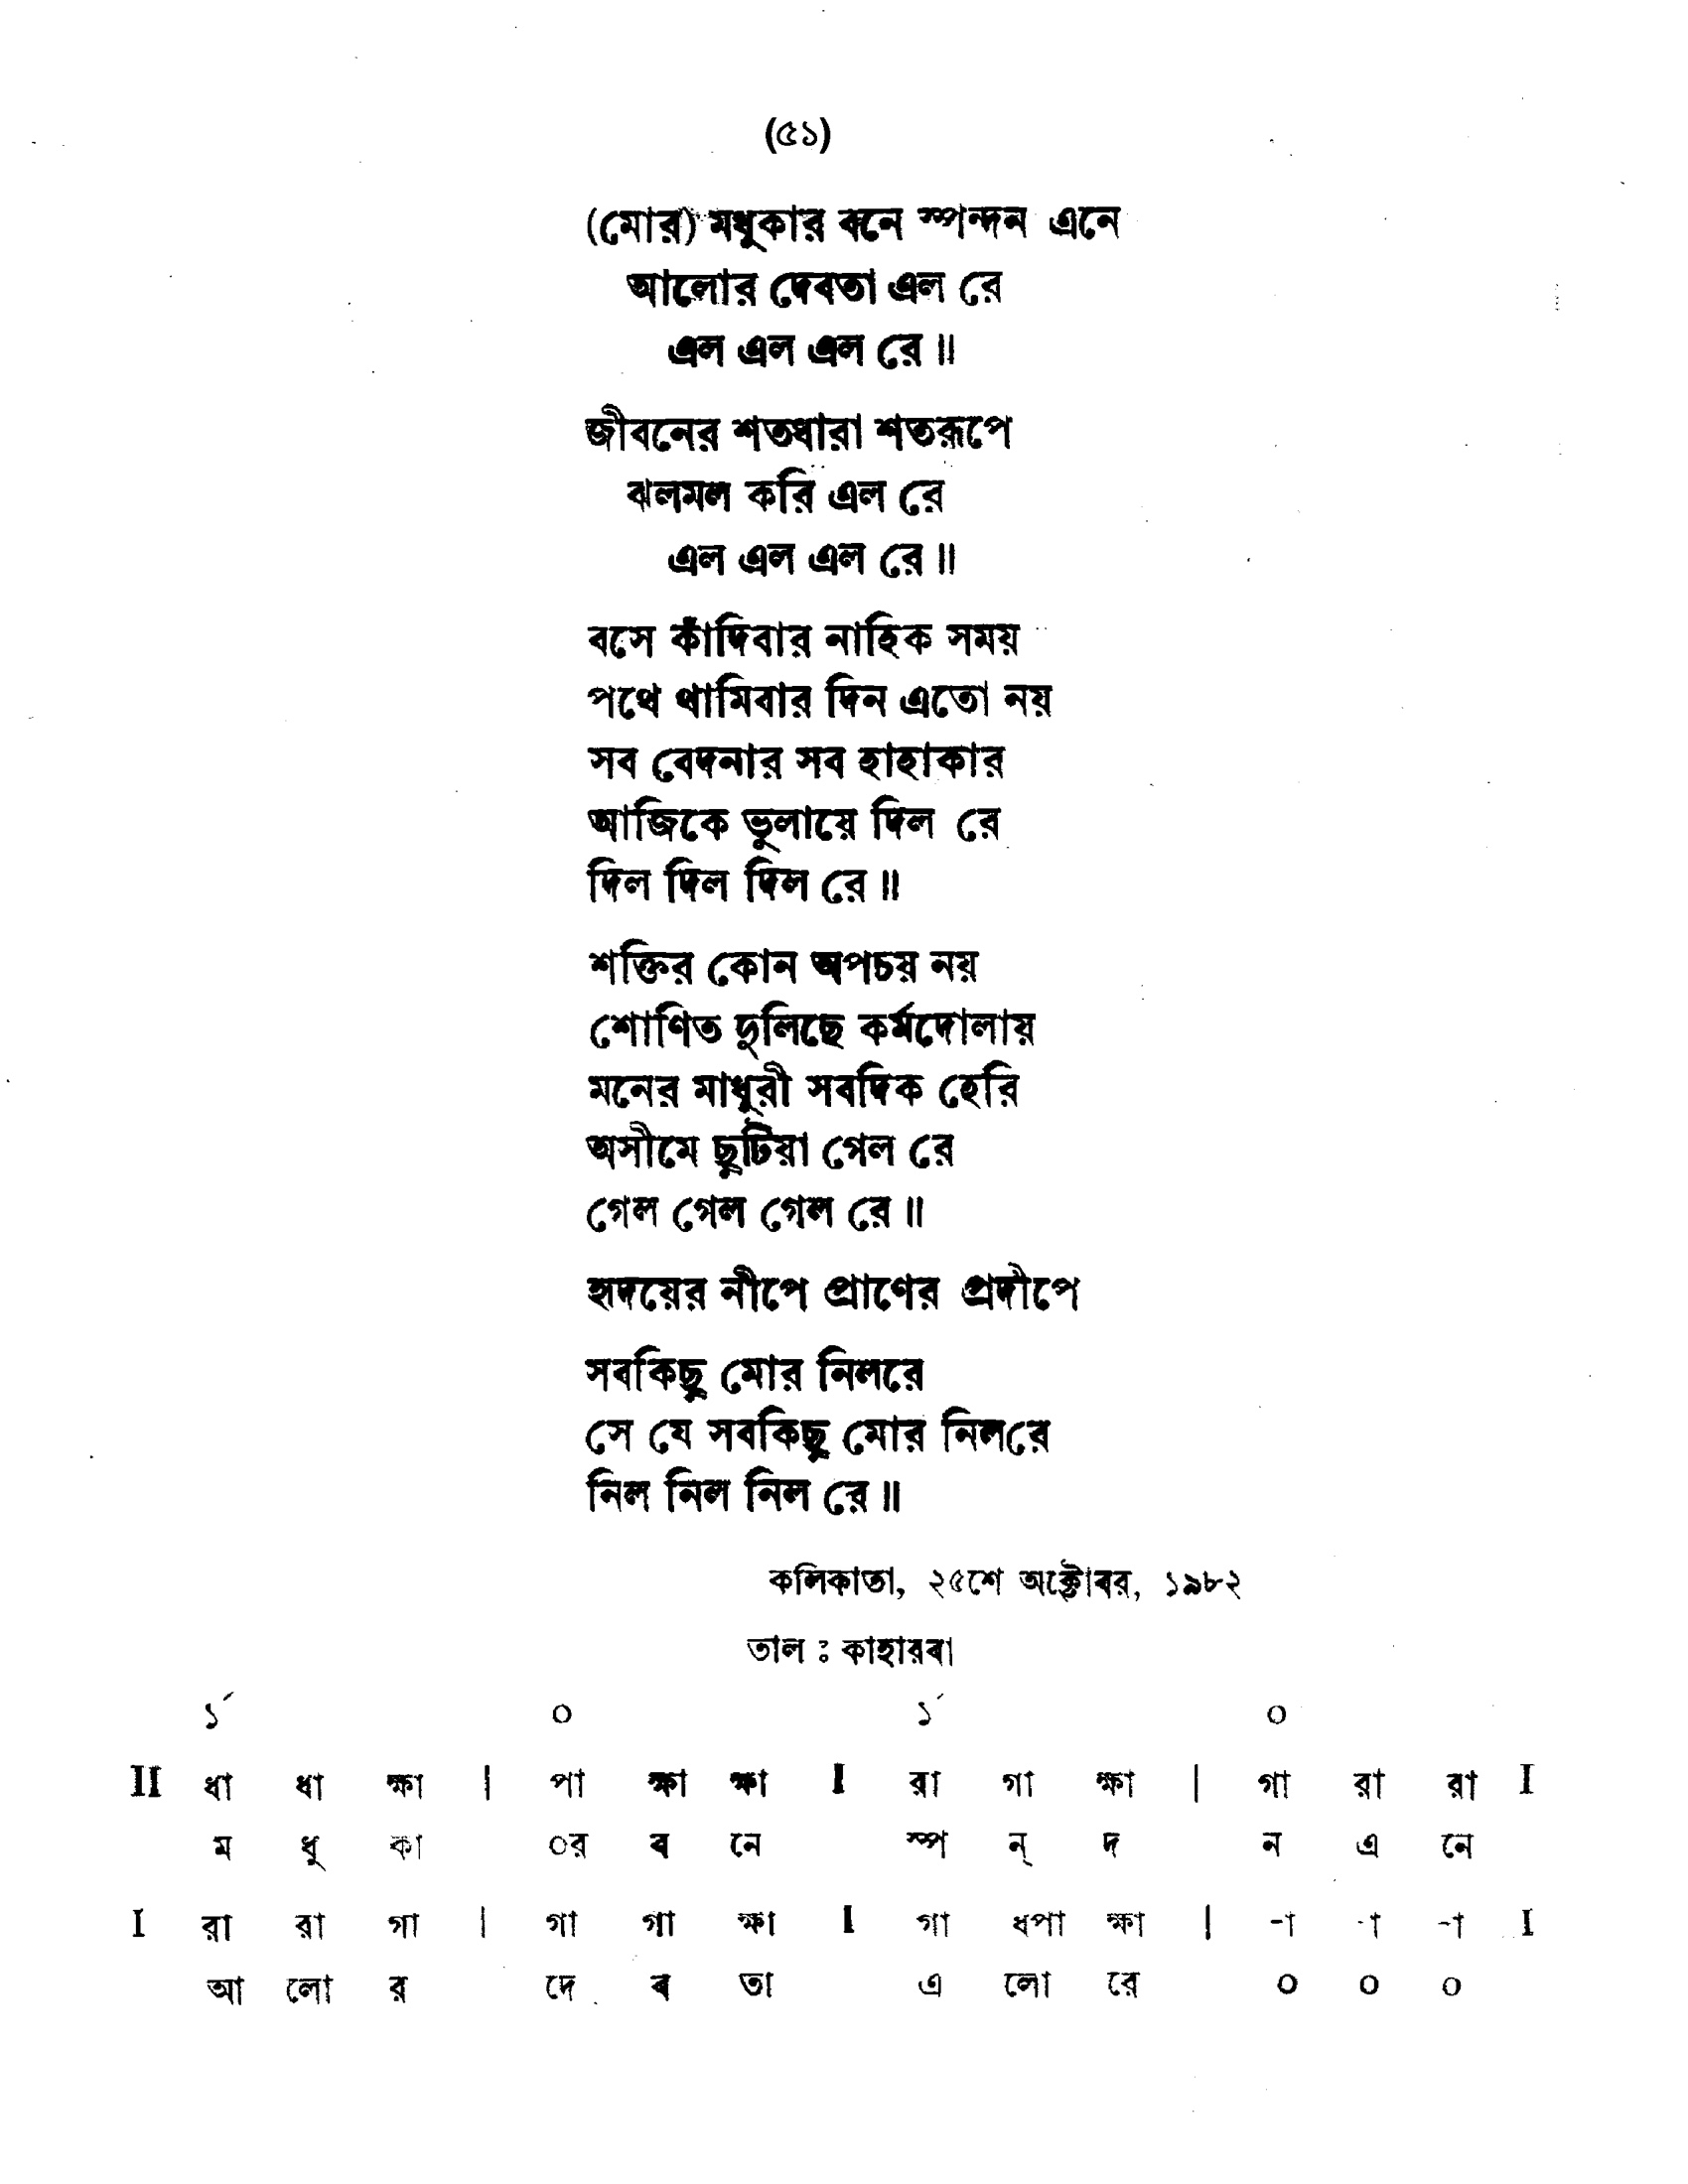 (৫১)
(মোর) মধুকার বনে স্পন্দন এনে
আলোর দেবতা এল রে
এল এল এল রে ॥
জীবনের শতধারা শতরূপে
ঝলমল করি এল রে
এল এল এল রে ॥
বসে কাঁদিবার নাহিক সময়
পথে থামিবার দিন এতো নয়
সব বেদনার সব হাহাকার
আজিকে ভুলায়ে দিল রে
দিল দিল দিল রে ॥
শক্তির কোন অপচয় নয়
শোণিত দুলিছে কর্মদোলায়
মনের মাধুরী সবদিক হেরি
অসীমে ছুটিয়া গেল রে
গেল গেল গেল রে ॥
হৃদয়ের নীপে প্রাণের প্রদীপে
সবকিছু মোর নিলরে
সে যে সবকিছু মোর নিলরে
নিল নিল নিল রে ॥
কলিকাতা, ২৫শে অক্টোবর, ১৯৮২
তাল ঃ কাহারবা
১´ ০ ১´ ০
II ধা ধা ক্ষা | পা ক্ষা ক্ষা I রা গা ক্ষা | গা রা রা I
ম ধু কা ০র ব নে স্প ন্ দ ন এ নে
I রা রা গা | গা গা ক্ষা I গা ধপা ক্ষা | -া -া -া I
আ লো র দে ব তা এ লো রে ০ ০ ০